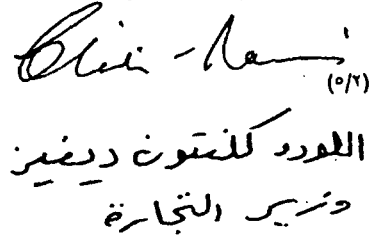 (٥/٢)
اللورد كلنتون ديفيز
وزير التجارة